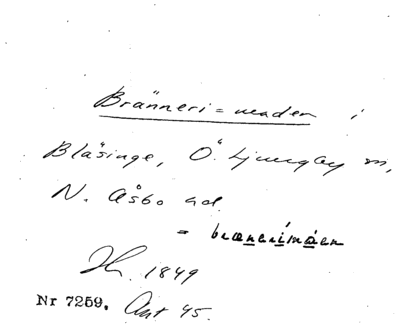 Bränneri=maden i
Bläsinge, Ö. Ljungby sn,
N. Åsbo hd.
= brænerimåen
Hr. 1849
Nr 7259. Ant 45.